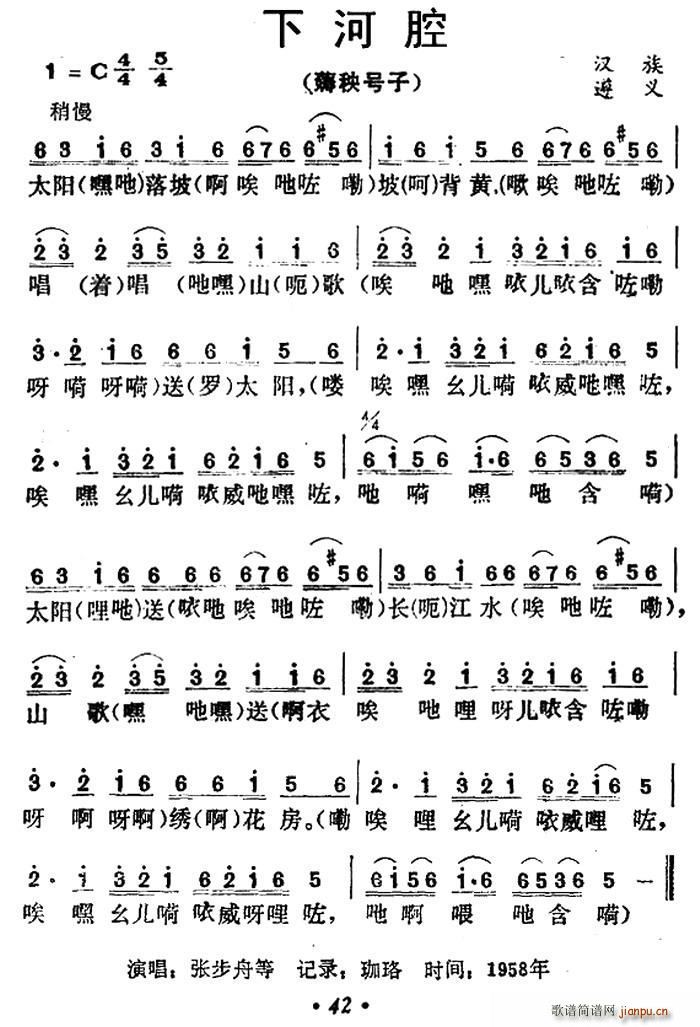 下河腔
1=C 4/4 5/4
(薅秧号子)
汉族
遵义
稍慢
63 i6 3i6 6676 6#56 | i6i 5 6 6676 6#56
太阳(嘿吔)落坡(啊唉吔咗嘞)坡(呵)背黄,(噷唉吔咗嘞)
23 2 35 32 i i 6 | 23 2 i 32i6 i6
唱(着)唱(吔嘿)山(呃)歌(唉吔嘿㕶儿㕶含咗嘞
3·2 i6 6 6 i 5 6 | 2·i 32i 62i6 5
呀嗬呀嗬)送(罗)太阳,(喽唉嘿幺儿嗬㕶威吔嘿咗,
4/4
2·i 32i 62i6 5 | 6i56 i·6 6536 5
唉嘿幺儿嗬㕶威吔嘿咗,吔嗬嘿吔含嗬)
63 i6 66 66 676 6#56 | 36i 66 676 6#56
太阳(哩吔)送(㕶吔唉吔咗嘞)长(呃)江水(唉吔咗嘞),
23 2 35 32 i i6 | 23 2 i 32i6 i6
山歌(嘿吔嘿)送(啊衣唉吔哩呀儿㕶含咗嘞
3·2 i6 6 6 i 5 6 | 2·i 32i 62i6 5
呀啊呀啊)绣(啊)花房。(嘞唉哩幺儿嗬㕶威哩咗,
2·i 32i 62i6 5 | 6i56 i·6 6536 5 -
唉嘿幺儿嗬㕶威呀哩咗,吔啊喂吔含嗬)
演唱:张步舟等 记录:珈珞 时间:1958年
·42·
歌谱简谱网
jianpu.cn